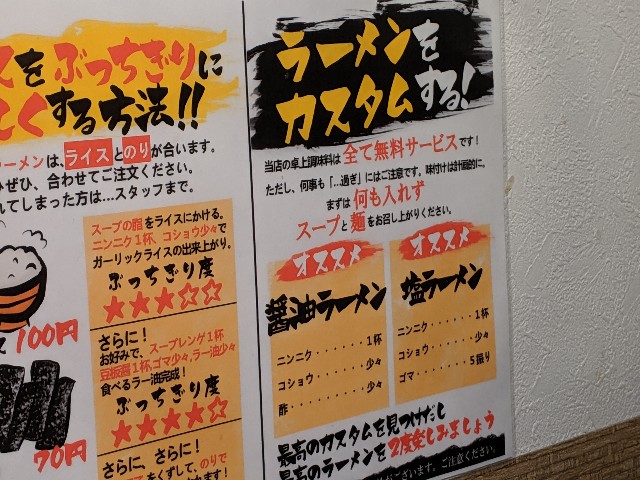 をぶっちぎりに
くする方法!!
ラーメンは、ライスとのりが合います。
ぜひ、合わせてご注文ください。
れてしまった方は…スタッフまで。
スープの脂をライスにかける。
ニンニク1杯、コショウ少々で
ガーリックライスの出来上がり。
ぶっちぎり度
★★★☆☆
100円
さらに!
お好みで、スープレンゲ1杯
豆板醤1杯、ゴマ少々、ラー油少々
食べるラー油完成!
ぶっちぎり度
★★★★☆
70円
さらに、さらに!
をくずして、のりで
ラーメンを
カスタムする!
当店の卓上調味料は全て無料サービスです!
ただし、何事も「…過ぎ」にはご注意です。味付けは計画的に。
まずは何も入れず
スープと麺をお召し上がりください。
オススメ
醤油ラーメン
ニンニク・・・・・・1杯
コショウ・・・・・・少々
酢・・・・・・・・・少々
オススメ
塩ラーメン
ニンニク・・・・・・1杯
コショウ・・・・・・少々
ゴマ・・・・・・5振り
最高のカスタムを見つけだし
最高のラーメンを2度楽しみましょう
ございます。ご注意ください。